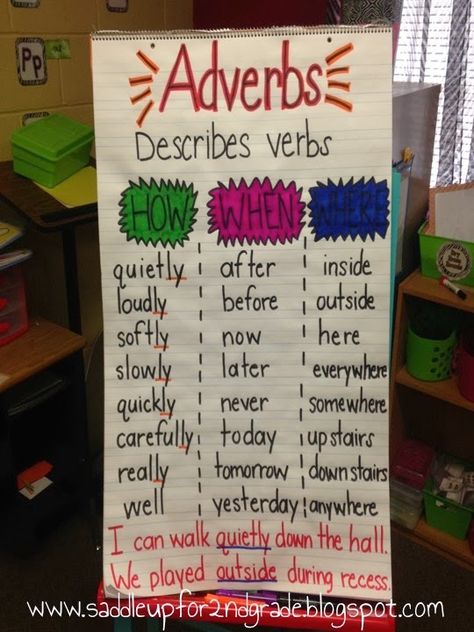 Pp
Adverbs
Describes verbs
HOW WHEN WHERE
quietly after inside
loudly before outside
softly now here
slowly later everywhere
quickly never somewhere
carefully today upstairs
really tomorrow downstairs
well yesterday anywhere
I can walk quietly down the hall.
We played outside during recess.
www.saddleupfor2ndgrade.blogspot.com